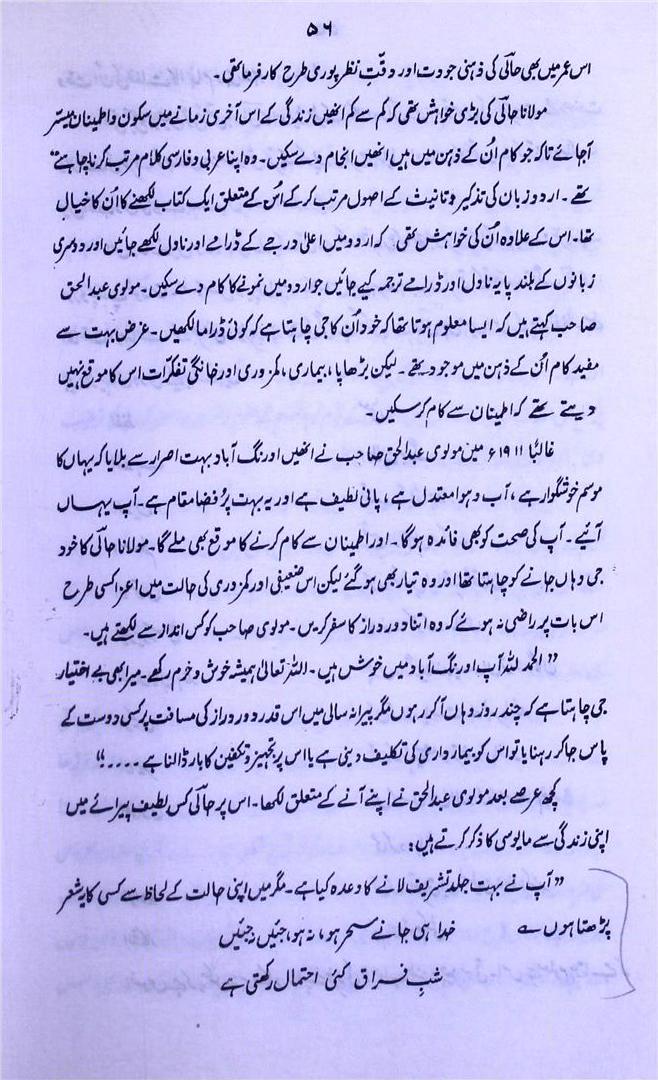 ۵۶
اس عمر میں بھی حالیؔ کی ذہنی جودت اور وقّتِ نظر پوری طرح کارفرما تھی۔
مولانا حالیؔ کی بڑی خواہش تھی کہ کم سے کم انھیں زندگی کے اس آخری زمانے میں سکون و اطینان میسّر
آجائے تاکہ جو کام اُن کے ذہن میں ہیں انھیں انجام دے سکیں۔ وہ اپنا عربی و فارسی کلام مرتب کرنا چاہتے
تھے۔ اردو زبان کی تذکیر و تانیث کے اصول مرتب کرکے اُس کے متعلق ایک کتاب لکھنے کا اُن کا خیال
تھا۔ اس کے علاوہ اُن کی خواہش تھی کہ اردو میں اعلیٰ درجے کے ڈرامے اور ناول لکھے جائیں اور دوسری
زبانوں کے بلند پایہ ناول اور ڈرامے ترجمہ کیے جائیں جو اردو میں نمونے کا کام دے سکیں۔ مولوی عبدالحق
صاحب کہتے ہیں کہ ایسا معلوم ہوتا تھا کہ خود اُن کا جی چاہتا ہے کہ کوئی ڈراما لکھیں۔ غرض بہت سے
مفید کام اُن کے ذہن میں موجود تھے۔ لیکن بڑھاپا، بیماری، کمزوری اور خانگی تفکّرات اس کا موقع نہیں
دیتے تھے کہ اطینان سے کام کرسکیں۔
غالبًا ۱۹۱۱ء میں مولوی عبدالحق صاحب نے انھیں اورنگ آباد بہت اصرار سے بلایا کہ یہاں کا
موسم خوشگوار ہے، آب و ہوا معتدل ہے، پانی لطیف ہے اور یہ بہت پُر فضا مقام ہے۔ آپ یہاں
آئیے۔ آپ کی صحت کو بھی فائدہ ہوگا۔ اور اطینان سے کام کرنے کا موقع بھی ملے گا۔ مولانا حالیؔ کا خود
جی وہاں جانے کو چاہتا تھا اور وہ تیار بھی ہوگئے لیکن اس ضعیفی اور کمزوری کی حالت میں اعزا کسی طرح
اس بات پر راضی نہ ہوئے کہ وہ اتنا دور دراز کا سفر کریں۔ مولوی صاحب کو کس انداز سے لکھتے ہیں۔
”الحمد للہ آپ اورنگ آباد میں خوش ہیں۔ اللہ تعالیٰ ہمیشہ خوش و خرم رکھے۔ میرا بھی بے اختیار
جی چاہتا ہے کہ چند روز وہاں آکر رہوں مگر پیرانہ سالی میں اس قدر دور دراز کی مسافت پر کسی دوست کے
پاس جاکر رہنا یا تو اس کو بیمارداری کی تکلیف دینی ہے یا اس پر تجہیز و تکفین کا بار ڈالنا ہے ....“
کچھ عرصے بعد مولوی عبدالحق نے اپنے آنے کے متعلق لکھا۔ اس پر حالیؔ کس لطیف پیرائے میں
اپنی زندگی سے مایوسی کا ذکر کرتے ہیں:
”آپ نے بہت جلد تشریف لانے کا وعدہ کیا ہے۔ مگر میں اپنی حالت کے لحاظ سے کسی کا یہ شعر
پڑھتا ہوں ؎ خدا ہی جانے سحر ہو، نہ ہو، جئیں نہ جئیں
شبِ فراق کئی احتمال رکھتی ہے